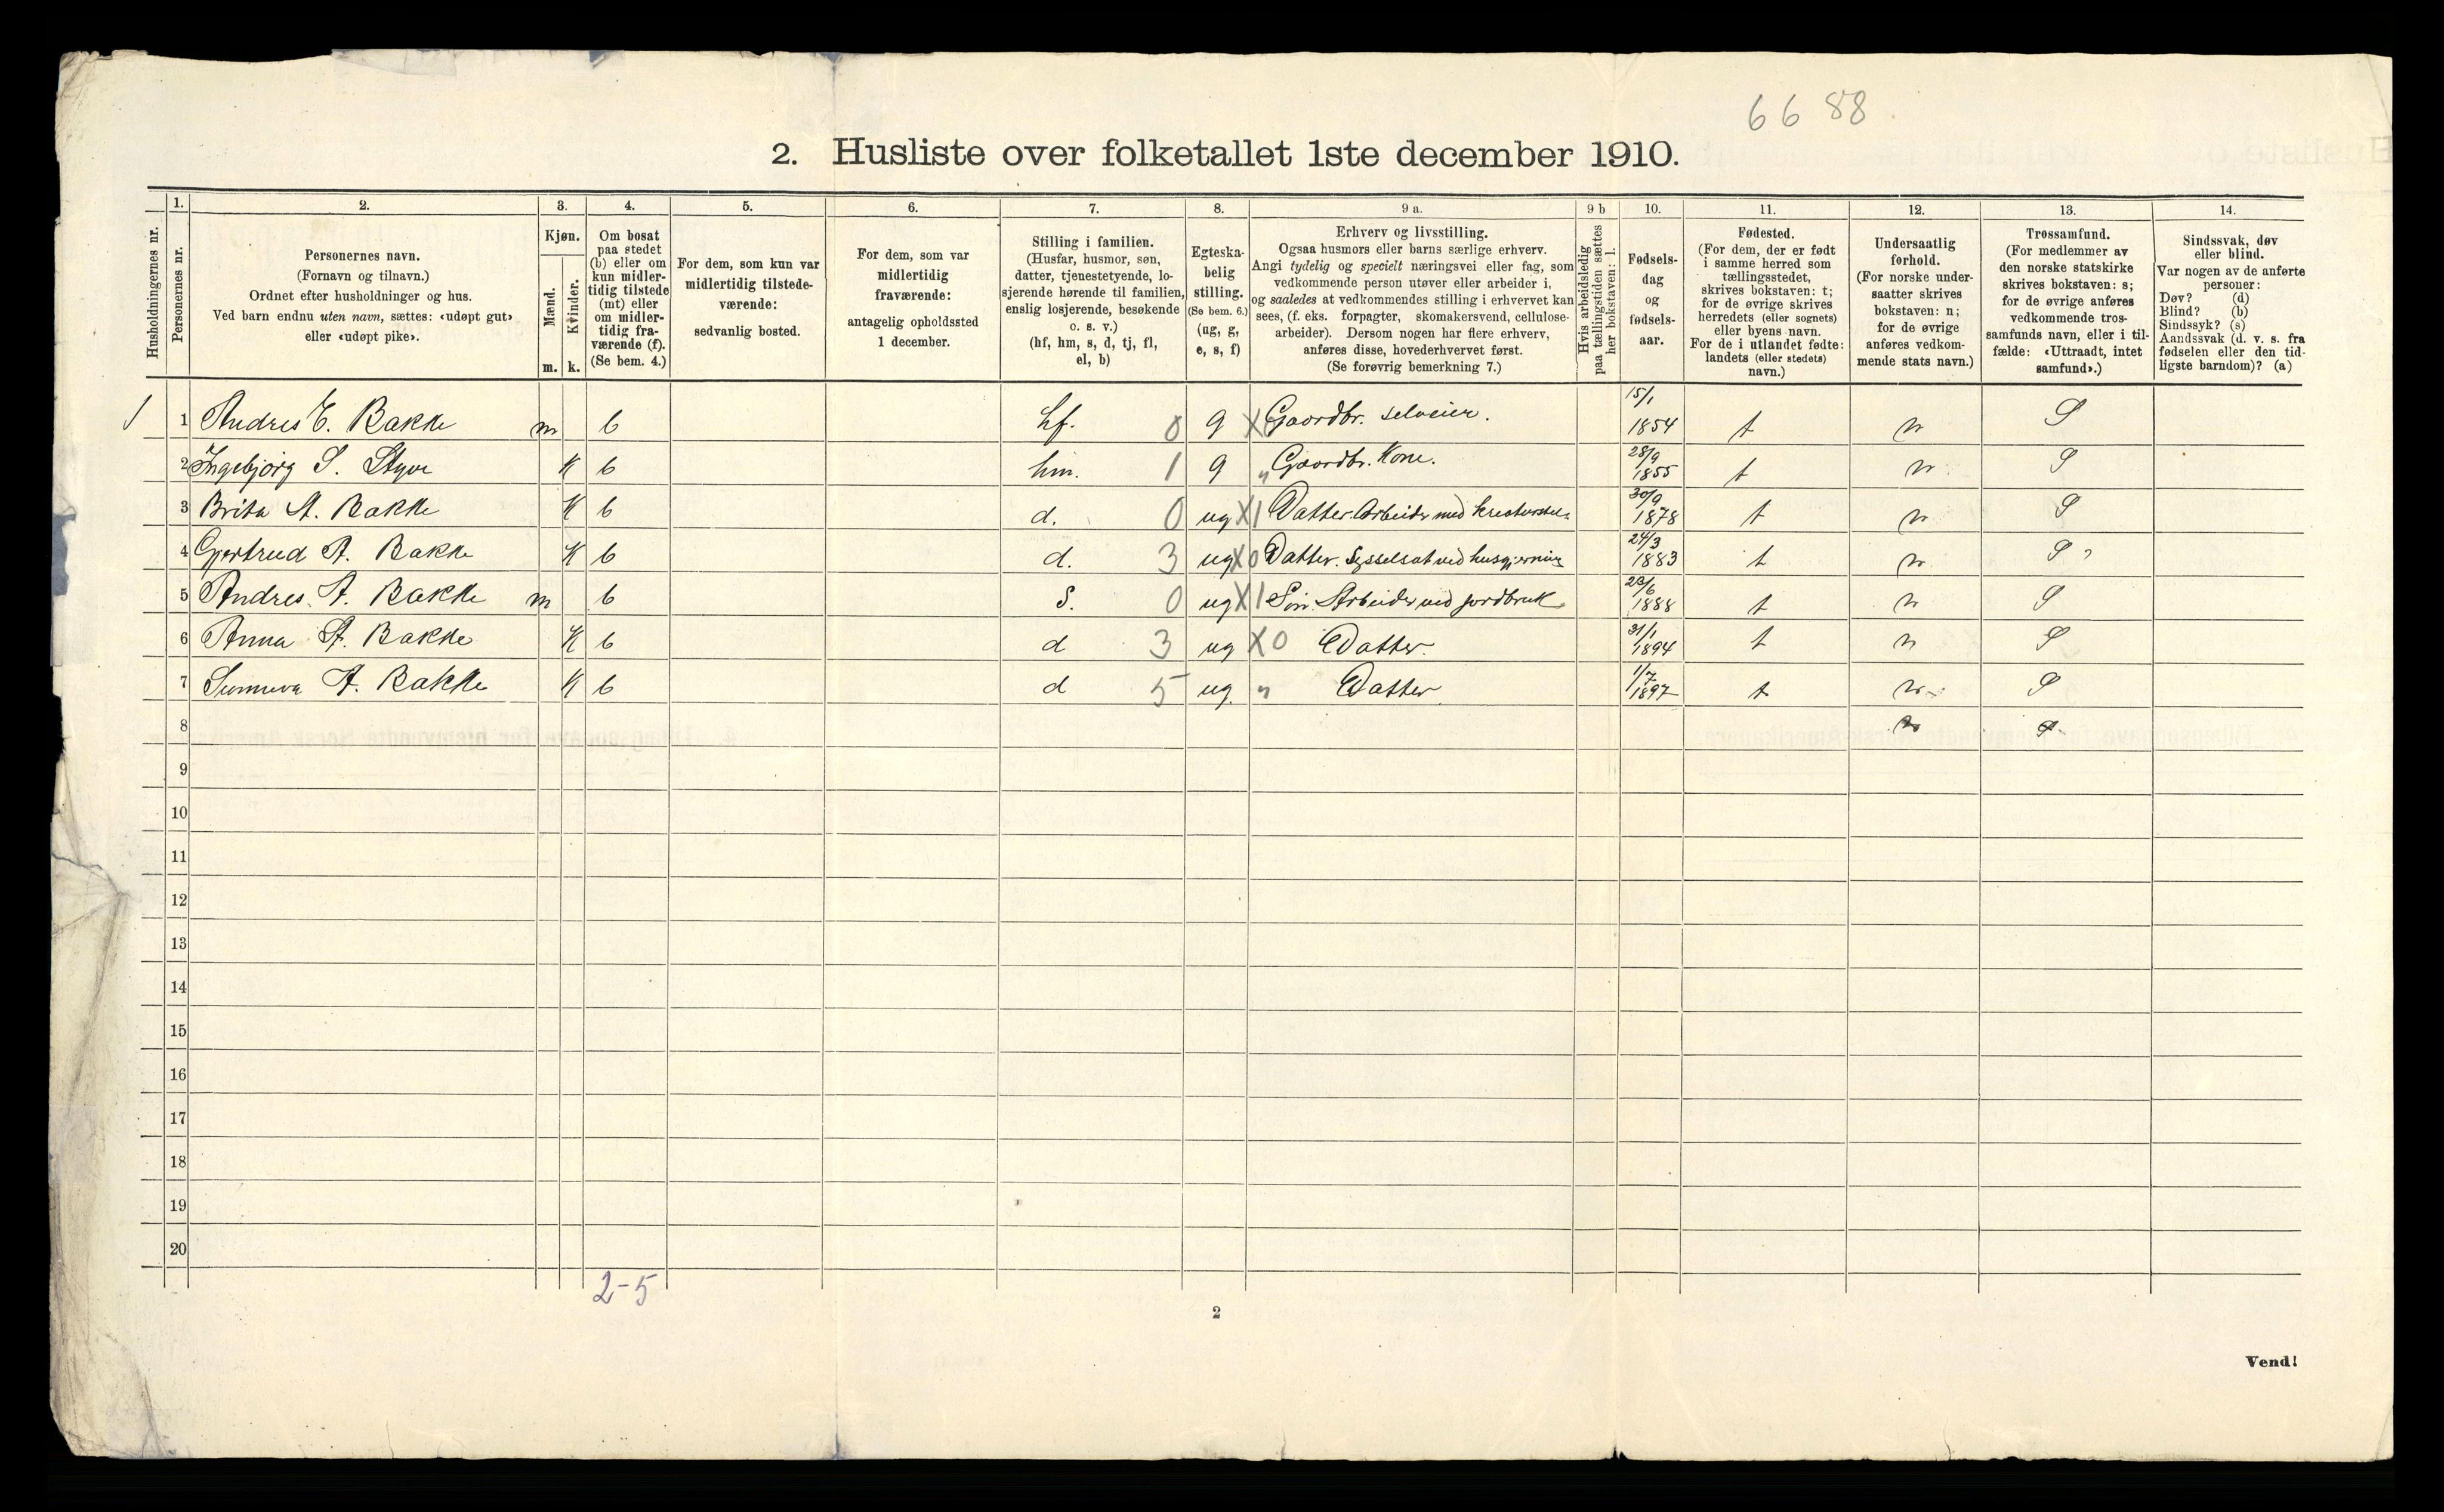 6 6 88
2. Husliste over folketallet 1ste december 1910.
Husholdningernes nr.
1.
Personernes nr.
2.
Personernes navn.
(Fornavn og tilnavn.)
Ordnet efter husholdninger og hus.
Ved barn endnu uten navn, sættes: «udøpt gut»
eller «udøpt pike».
3.
Kjøn.
Mænd.
Kvinder.
m. k.
4.
Om bosat
paa stedet
(b) eller om
kun midler-
tidig tilstede
(mt) eller
om midler-
tidig fra-
værende (f).
(Se bem. 4.)
5.
For dem, som kun var
midlertidig tilstede-
værende:
sedvanlig bosted.
6.
For dem, som var
midlertidig
fraværende:
antagelig opholdssted
1 december.
7.
Stilling i familien.
(Husfar, husmor, søn,
datter, tjenestetyende, lo-
sjerende hørende til familien,
enslig losjerende, besøkende
o. s. v.)
(hf, hm, s, d, tj, fl,
el, b)
8.
Egteska-
belig
stilling.
(Se bem. 6.)
(ug, g,
e, s, f)
9 a.
Erhverv og livsstilling.
Ogsaa husmors eller barns særlige erhverv.
Angi tydelig og specielt næringsvei eller fag, som
vedkommende person utøver eller arbeider i,
og saaledes at vedkommendes stilling i erhvervet kan
sees, (f. eks. forpagter, skomakersvend, cellulose-
arbeider). Dersom nogen har flere erhverv,
anføres disse, hovederhvervet først.
(Se forøvrig bemerkning 7.)
9 b
Hvis arbeidsledig
paa tællingstiden sættes
her bokstaven: l.
10.
Fødsels-
dag
og
fødsels-
aar.
11.
Fødested.
(For dem, der er født
i samme herred som
tællingsstedet,
skrives bokstaven: t;
for de øvrige skrives
herredets (eller sognets)
eller byens navn.
For de i utlandet fødte:
landets (eller stedets)
navn.)
12.
Undersaatlig
forhold.
(For norske under-
saatter skrives
bokstaven: n;
for de øvrige
anføres vedkom-
mende stats navn.)
13.
Trossamfund.
(For medlemmer av
den norske statskirke
skrives bokstaven: s;
for de øvrige anføres
vedkommende tros-
samfunds navn, eller i til-
fælde: «Uttraadt, intet
samfund».)
14.
Sindssvak, døv
eller blind.
Var nogen av de anførte
personer:
Døv? (d)
Blind? (b)
Sindssyk? (s)
Aandssvak (d. v. s. fra
fødselen eller den tid-
ligste barndom)? (a)
1 1 Andres E. Bakke m b hf. 0 g X Gaardbr. selveier. 15/1 1854 t n S
2 Ingebjörg S. Styve K b hm. 1 g " Gaardbr. Kone. 28/9 1855 t n S
3 Brita A. Bakke K b d. 0 ug X1 Datter Arbeider med kreaturstel 30/9 1878 t n S
4 Gjertrud A. Bakke K b d. 3 ug X0 Datter. Sysselsat ved husgjerning 24/3 1883 t n S
5 Andres A. Bakke m b S. 0 ug X1 Sön. Arbeider ved jordbruk 23/6 1888 t n S
6 Anna A. Bakke K b d 3 ug X0 Datter. 31/1 1894 t n S
7 Sunneva A. Bakke K b d 5 ug. " Datter. 1/7 1897 t n S
8 n S
9
10
11
12
13
14
15
16
17
18
19
20
2-5
2
Vend!